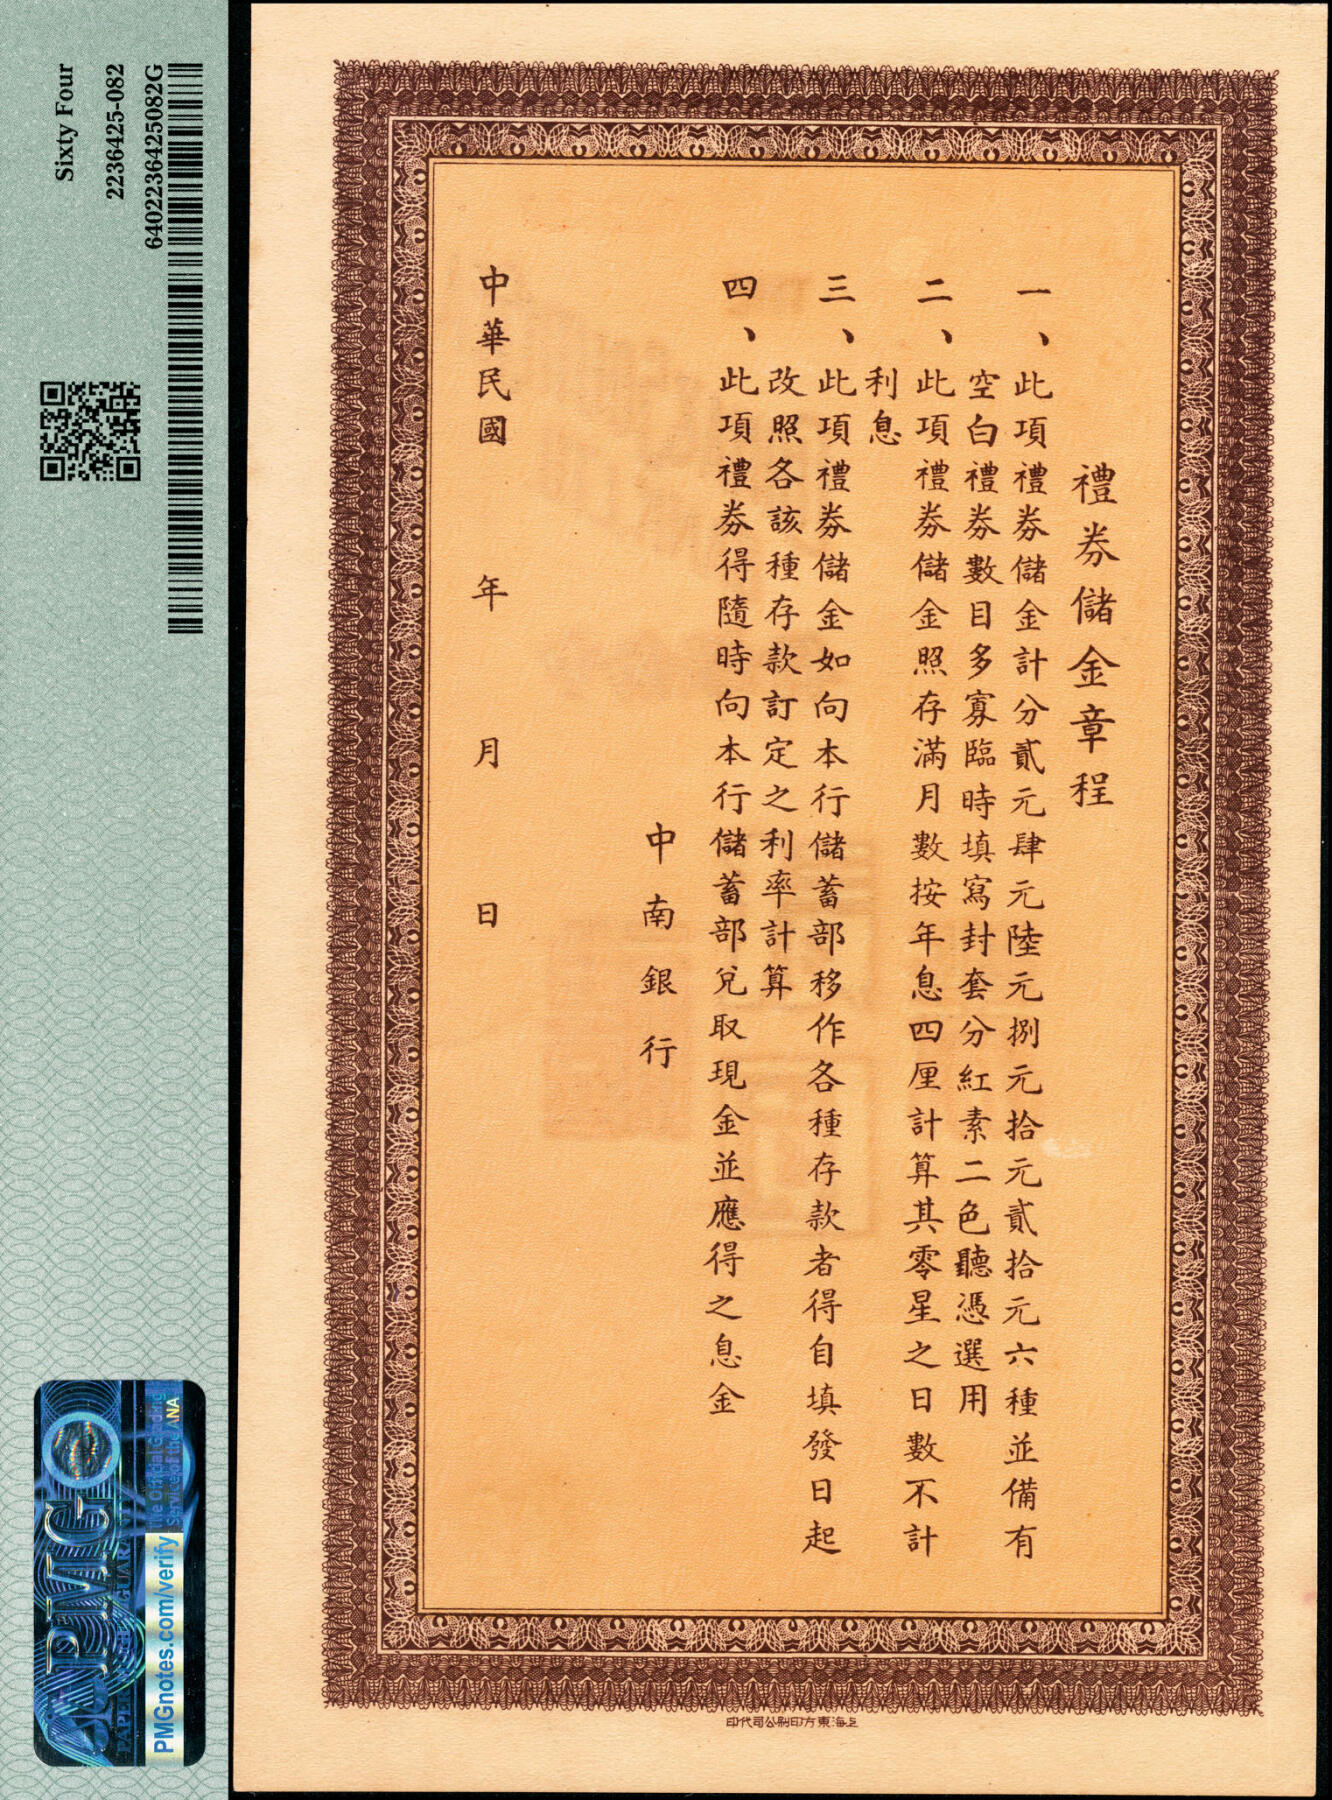 禮券儲金章程
一、此項禮券儲金計分貳元肆元陸元捌元拾元貳拾元六種並備有
空白禮券數目多寡臨時填寫封套分紅素二色聽憑選用
二、此項禮券儲金照存滿月數按年息四厘計算其零星之日數不計
利息
三、此項禮券儲金如向本行儲蓄部移作各種存款者得自填發日起
改照各該種存款訂定之利率計算
四、此項禮券得隨時向本行儲蓄部兌取現金並應得之息金
中南銀行
中華民國 年 月 日
印代司公刷印方東海上
Sixty Four
2236425-082
6402236425082G
PMG
PMGnotes.com/verify
The Official Grading
Service of the ANA